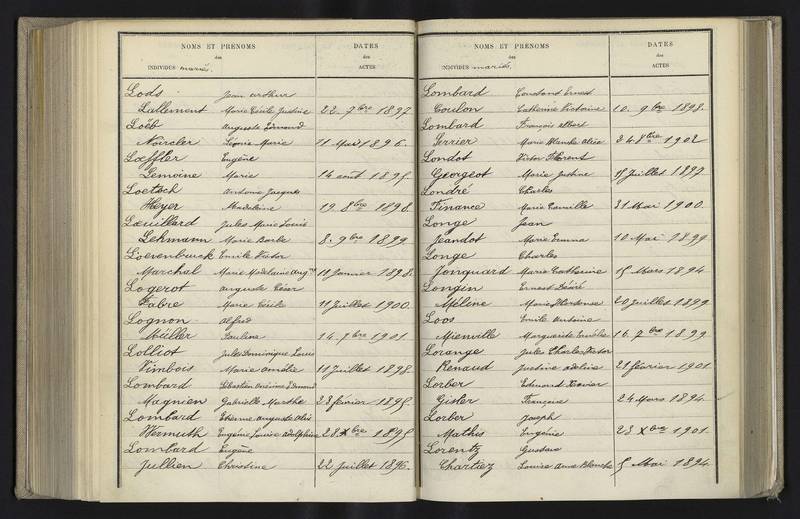 NOMS ET PRÉNOMS DATES
des des
INDIVIDUS mariés. ACTES
Lods Jean Arthur
Lallement Marie Cécile Justine 22. 7bre 1897
Loëb Auguste Edmond
Noircler Léonie Marie 11 Mai 1896.
Lœffler Eugène
Lemoine Marie 14 août 1895.
Loetsch Antoine Jacques
Heyer Madeleine 19. 8bre 1898.
Lœuillard Jules Marie Louis
Lehmann Marie Barbe 8. 9bre 1899
Lœvenbruck Emile Victor
Marchal Marie Madelaine Augne 11 Janvier 1898.
Logerot Auguste César
Fabre Marie Cécile 11 Juillet 1900.
Lognon Alfred
Müller Pauline 14. 7bre 1901
Lolliot Jules Dominique Louis
Vimbois Marie Amélie 11 Juillet 1898.
Lombard Sébastien Onésime Edmond
Magnien Gabrielle Marthe 28 février 1895.
Lombard Etienne Auguste
Wermuth Eugénie Louise Adolphine 28. Xbre 1895
Lombard Eugène
Jullien Christine 22 Juillet 1896.
NOMS ET PRÉNOMS DATES
des des
INDIVIDUS mariés. ACTES
Lombard Constant Ernest
Coulon Catherine Victorine 10. 9bre 1898.
Lombard François Albert
Ferrier Marie Blanche Alice 24 8bre 1902
Londot Victor Florent
Georgeot Marie Justine 15 Juillet 1899
Londré Charles
Finance Marie Camille 31 Mai 1900.
Longe Jean
Jeandot Marie Emma 10 Mai 1899
Longe Charles
Jonquard Marie Catherine 15 Mars 1894
Longin Ernest Désiré
Mélène Marie Hortense 20 Juillet 1899
Loos Emile Antoine
Mienville Marguerite 16. 7bre 1899
Lorange Jules Charles Victor
Renaud Justine Adeline 21 février 1901
Lorber Edouard Xavier
Gisler Françoise 24 Mars 1894
Lorber Joseph
Mathis Eugénie 23 Xbre 1901.
Lorentz Gustave
Chartiez Louise Anne Blanche 5 Mai 1894